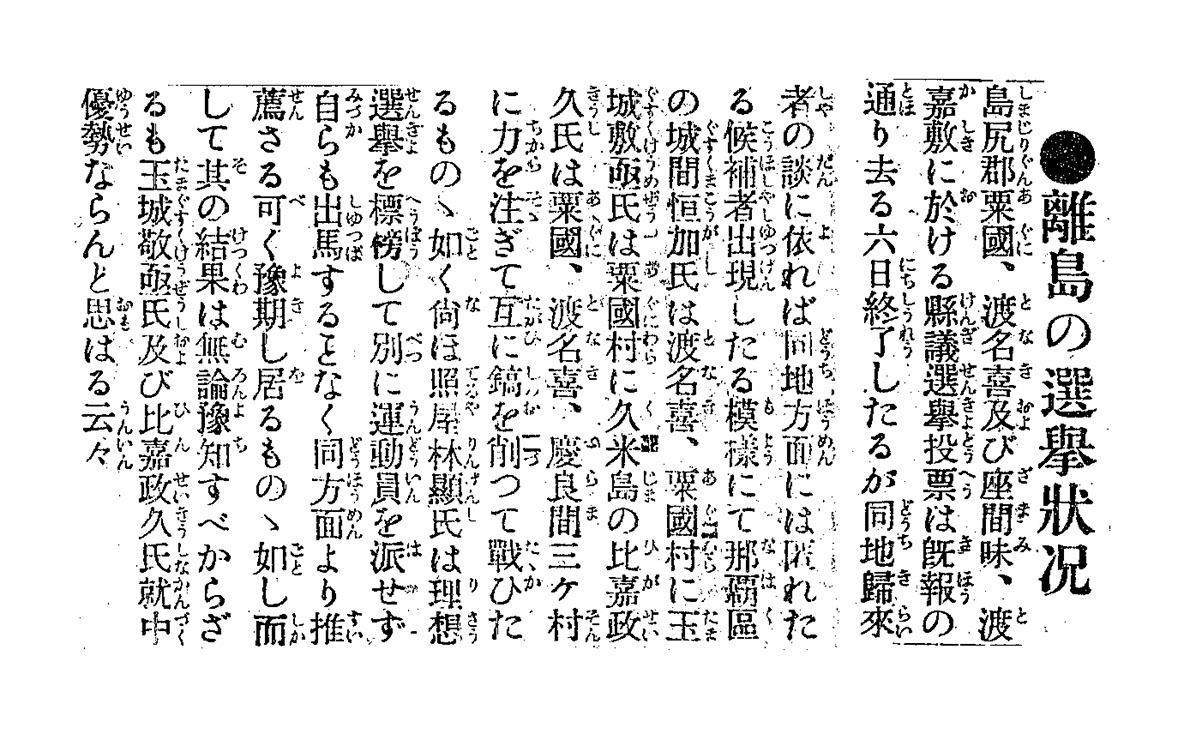 ●離島の選擧狀况
島尻郡粟國、渡名喜及び座間味、渡
嘉敷に於ける縣議選擧投票は既報の
通り去る六日終了したるが同地歸來
者の談に依れば同地方面には匿れた
る候補者出現したる模樣にて那覇區
の城間恒加氏は渡名喜、粟國村に玉
城敷亟氏は粟國村に久米島の比嘉政
久氏は粟國、渡名喜、慶良間三ケ村
に力を注ぎて互に鎬を削つて戰ひた
るものヽ如く尙ほ照屋林顯氏は理想
選擧を標榜して別に運動員を派せず
自らも出馬することなく同方面より推
薦さる可く豫期し居るものヽ如し而
して其の結果は無論豫知すべからざ
るも玉城敬亟氏及び比嘉政久氏就中
優勢ならんと思はる云々